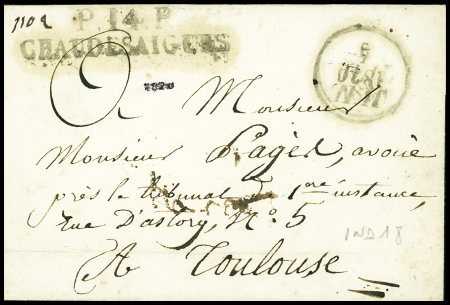 1102
P. 14. P.
CHAUDESAIGUES
A Monsieur
Monsieur Pagès, avoué
près le tribunal de 1ère instance,
rue D'astorg, N° 5
A Toulouse
IND 18